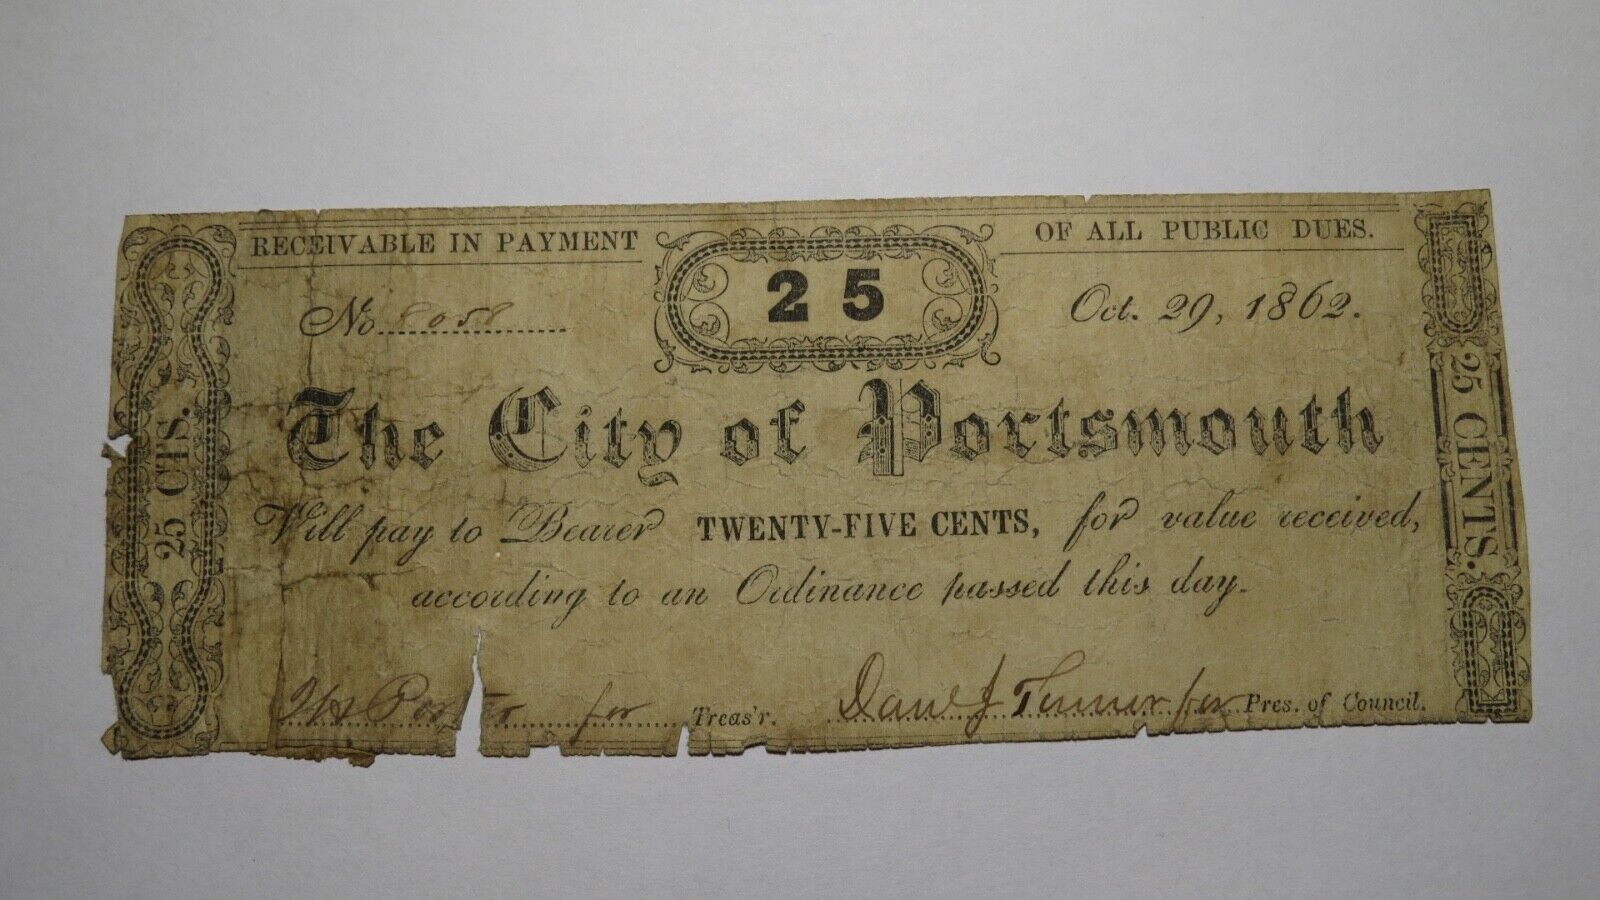 RECEIVABLE IN PAYMENT OF ALL PUBLIC DUES.
25
No. 8058 Oct. 29, 1862.
The City of Portsmouth
Will pay to Bearer TWENTY-FIVE CENTS, for value received,
according to an Ordinance passed this day.
Porter for Treas'r. Danl J Turner for Pres. of Council.
25 CTS.
25 CENTS.